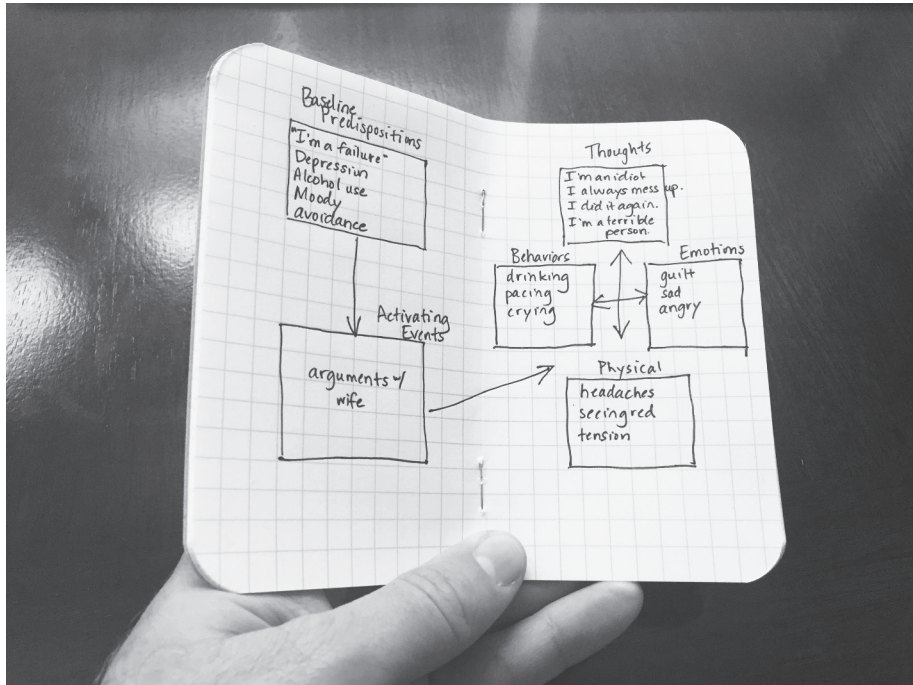 Baseline
Predispositions
"I'm a failure"
Depression
Alcohol use
Moody
avoidance
Activating
Events
arguments w/
wife
Thoughts
I'm an idiot
I always mess up.
I did it again.
I'm a terrible
person.
Behaviors
drinking
pacing
crying
Emotions
guilt
sad
angry
Physical
headaches
seeing red
tension